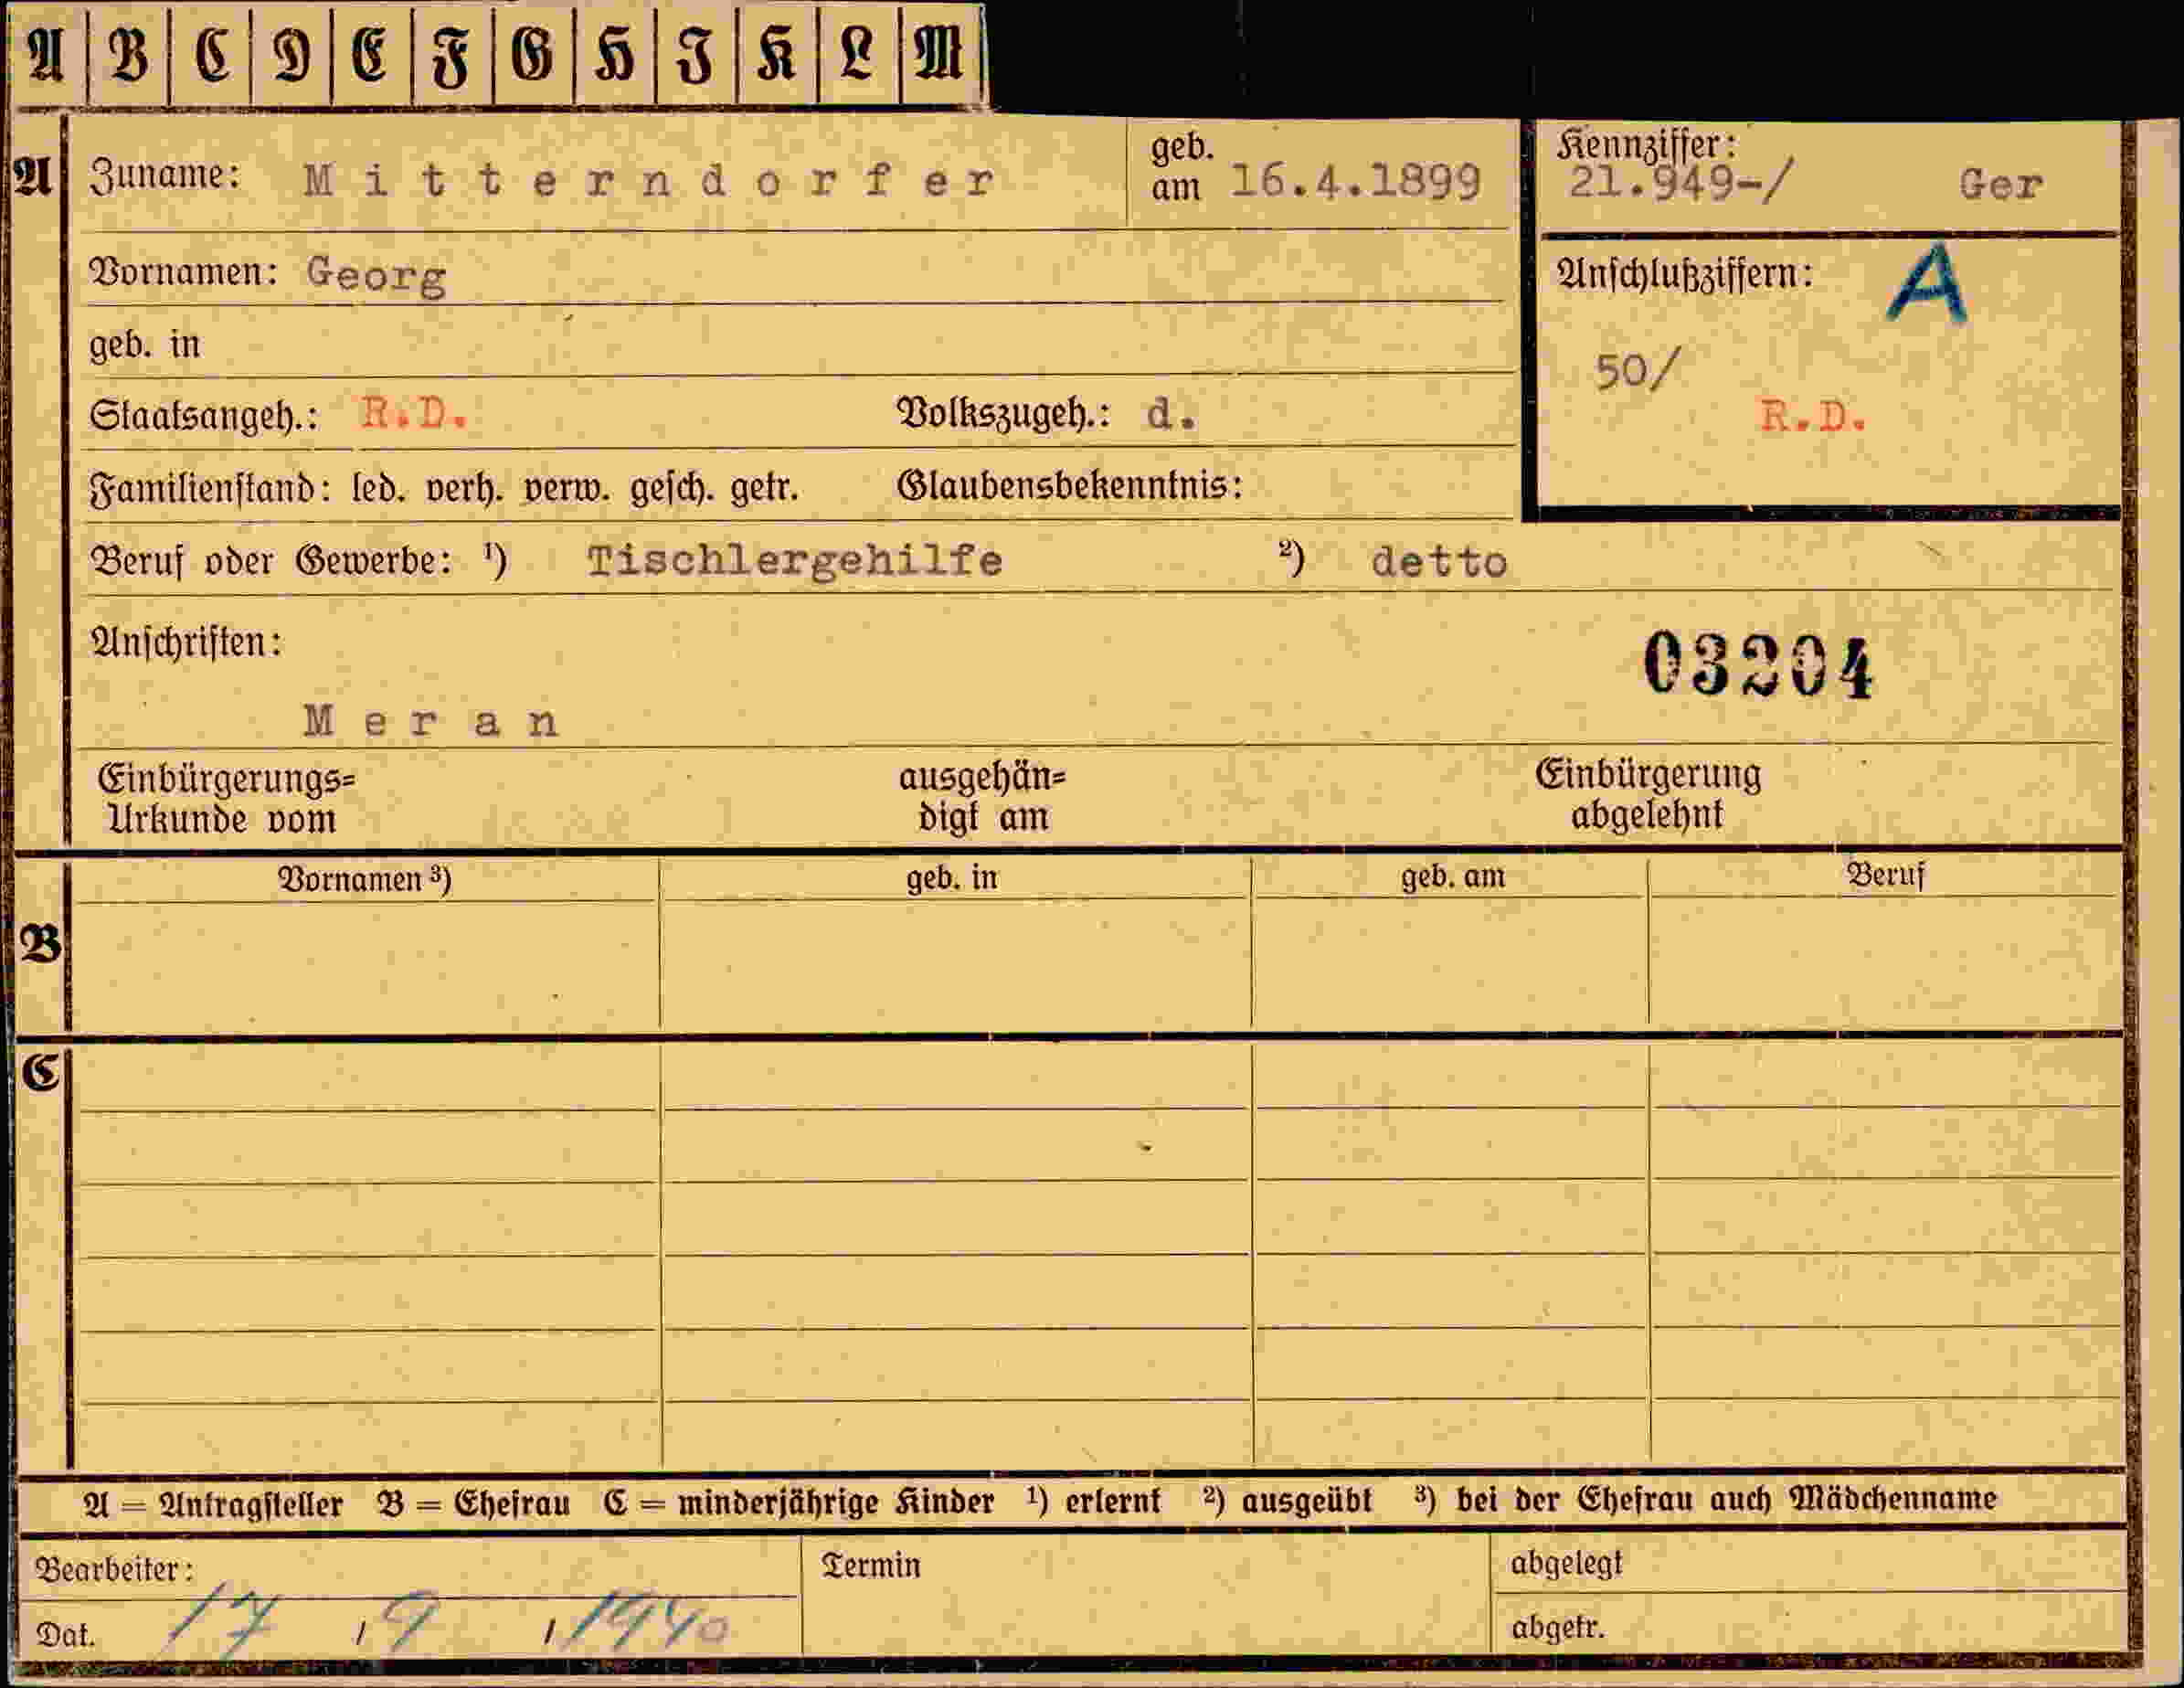 A B C D E F G H I K L M
A Zuname: Mitterndorfer geb. am 16.4.1899 Kennziffer: 21.949-/ Ger
Vornamen: Georg Anschlußziffern: A
geb. in 50/
Staatsangeh.: R.D. Volkszugeh.: d. R.D.
Familienstand: led. verh. verw. gesch. getr. Glaubensbekenntnis:
Beruf oder Gewerbe: ¹) Tischlergehilfe ²) detto
Anschriften: 03204
Meran
Einbürgerungs= ausgehän= Einbürgerung
Urkunde vom digt am abgelehnt
Vornamen ³) geb. in geb. am Beruf
B
C
A = Antragsteller B = Ehefrau C = minderjährige Kinder ¹) erlernt ²) ausgeübt ³) bei der Ehefrau auch Mädchenname
Bearbeiter: Termin abgelegt
Dat. 17 / 9 / 1940 abgetr.